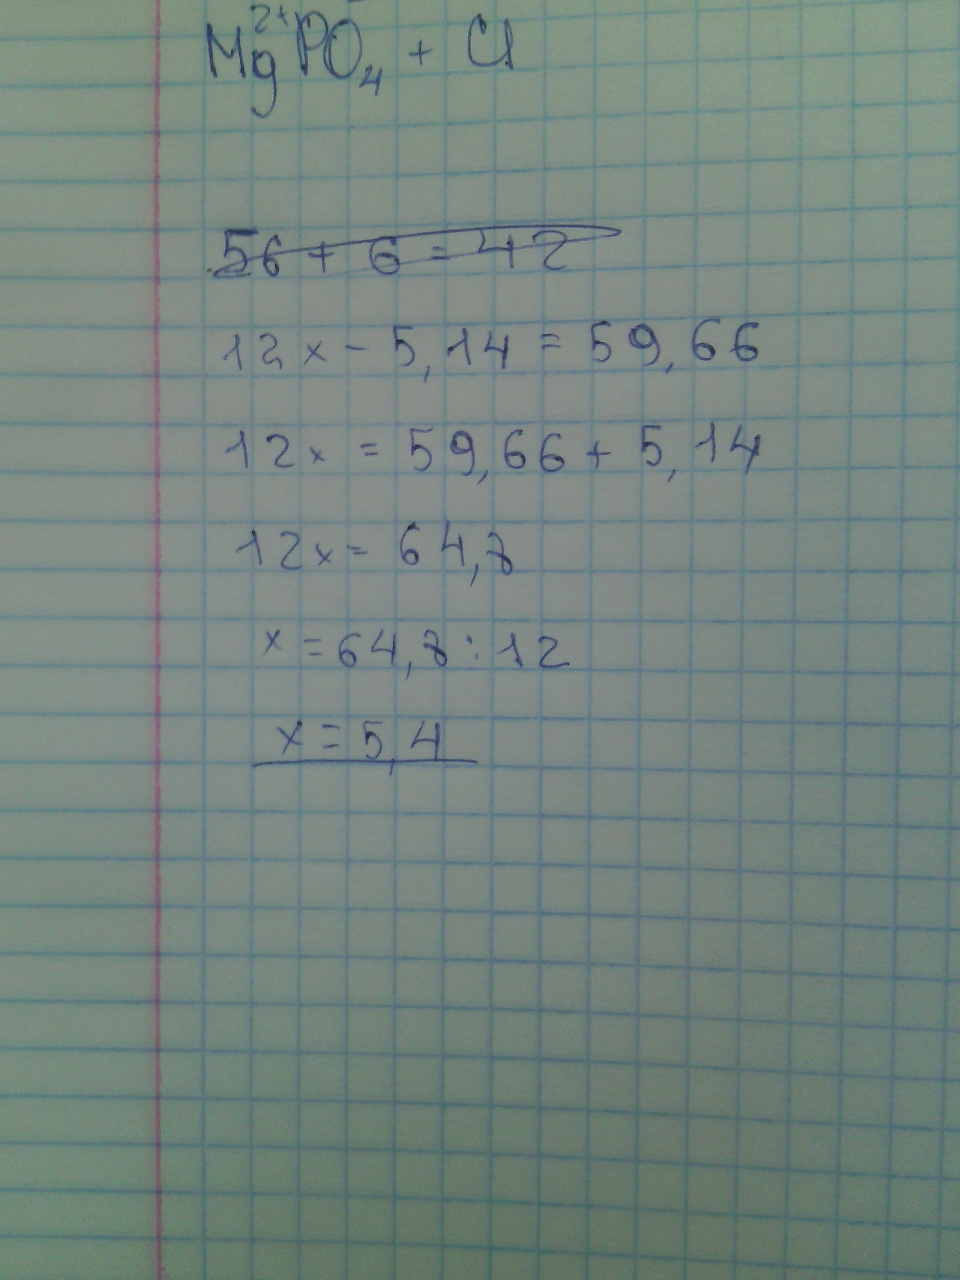 Mg²⁺PO₄ + Cl
56 + 6 = 42
12x - 5,14 = 59,66
12x = 59,66 + 5,14
12x = 64,8
x = 64,8 : 12
x = 5,4